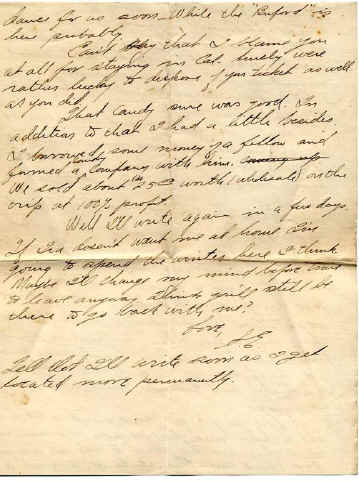 dance for us soon. While the "Buford" is
here probably.
Can't say that I blame you
at all for staying in Cal. Surely were
rather lucky to dispose of your ticket as well
as you did.
That candy sure was good. In
addition to that I had a little besides
I borrowed some money of a fellow and
formed a candy company with him.
We sold about $25.00 worth (wholesale) on the
trip at 100% profit.
Well I'll write again in a few days
If doesn't want me at home I'm
going to spend the winter here I think
Maybe I'll change my mind before time
to leave anyway. Think you'll still be
there to go back with me?
Love,
Tell I'll write soon as I get
located more permanently.